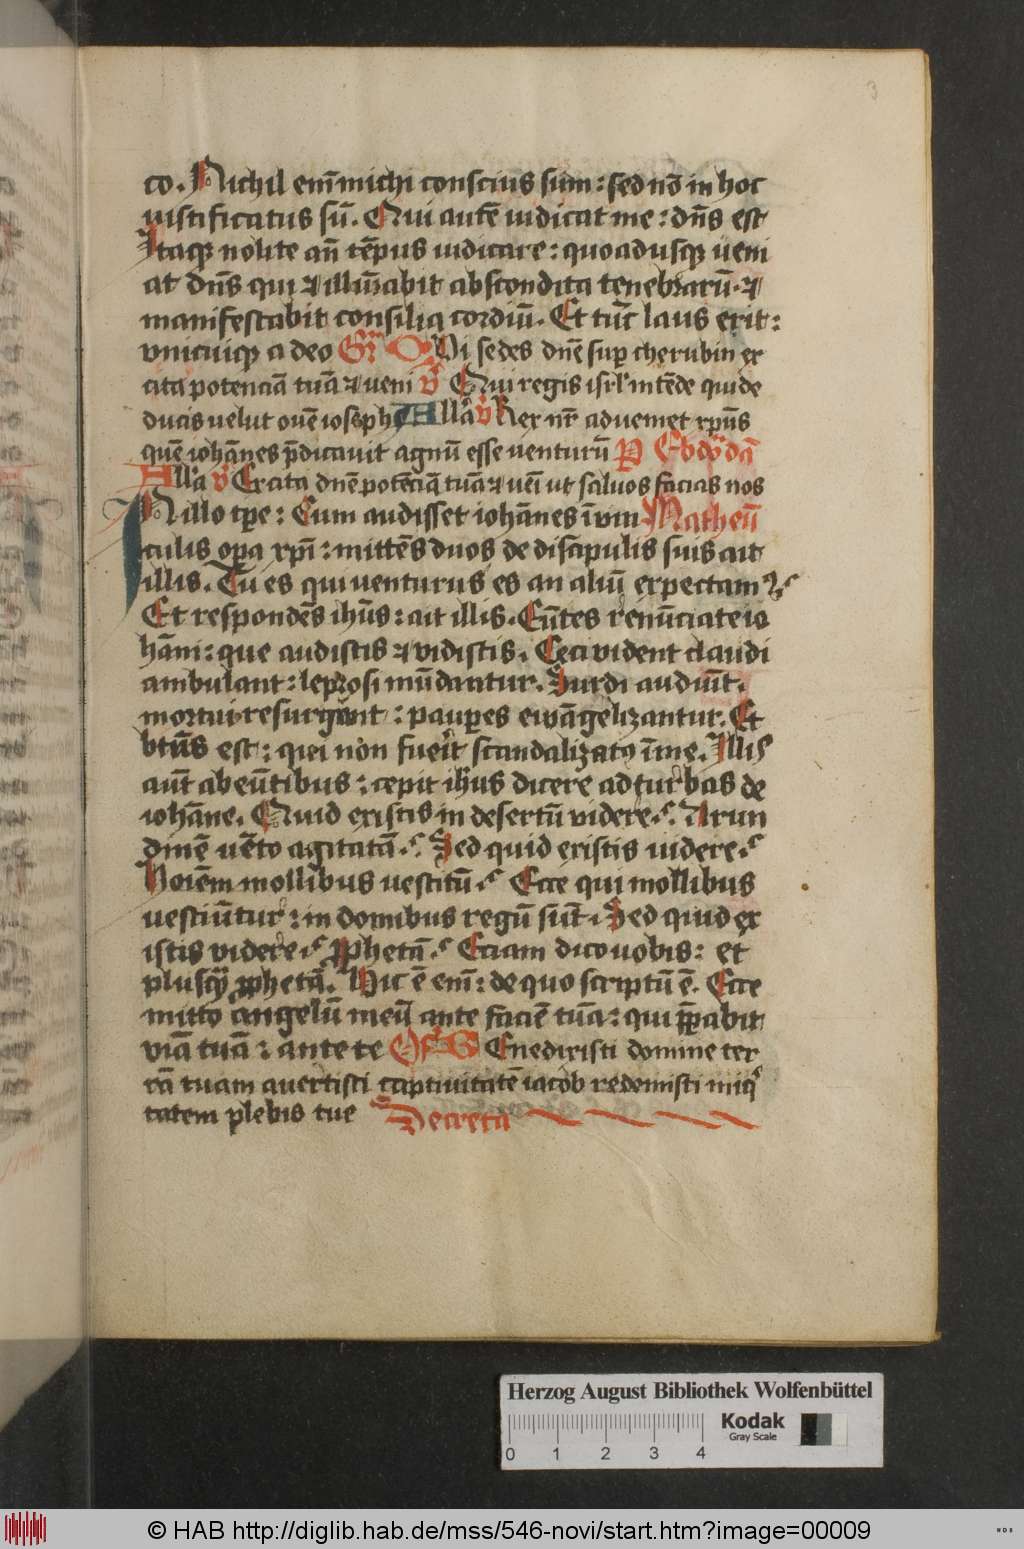 3
co. Nichil em̄ michi conscius sum: sed nō in hoc
iustificatus sū. Qui autē iudicat me: dn̄s est
Itaqꝫ nolite an̄ tēpus iudicare: quoadusqꝫ ueni
at dn̄s qui ⁊ illūīabit abscondita tenebrarū. ⁊
manifestabit consilia cordiū. Et tūc laus erit:
vnicuiqꝫ a deo Gr̄ Qui sedes dn̄e suꝑ cherubin ex
cita potenciā tuā ⁊ ueni v̄ Qui regis isrl̄ intēde qui de
ducis uelut ouē ioseph Alla v̄ Rex nr̄ adueniet xp̄us
quē iohānes p̄dicauit agnū esse uenturū
Alla v̄ Excita dn̄e potēciā tuā ⁊ uēi ut saluos facias nos
IN illo tꝑe: Cum audisset iohānes ī vin Matheū
culis oꝑa xp̄i: mittēs duos de discipulis suis ait
illis. Tu es qui uenturus es an aliū expectamꝰ
Et respondēs ihūs: ait illis. Eūtes renūciate io
hāni: que audistis ⁊ vidistis. Ceci vident claudi
ambulant: leprosi mūdantur. Surdi audiūt.
mortui resurgūnt: pauꝑes ewāgelizantur. Et
btūs est: qui non fuerit scandalizatꝰ ī me. Illis
aūt abeūtibus: cepit ihūs dicere ad turbas de
iohāne. Quid existis in desertū videre. Arun
dinē uēto agitatā. Sed quid existis uidere.
Hoīem mollibus uestitū. Ecce qui mollibus
uestiūtur: in domibus regū sūt. Sed quid ex
istis videre. ꝓphetā. Eciam dico uobis: et
plus qꝫ ꝓphetā. Hic ē em̄: de quo scriptū ē. Ecce
mitto angelū meū ante faciē tuā: qui p̄parabit
viā tuā: ante te Of BEnedixisti domine ter
rā tuam auertisti captiuitatē iacob redemisti iniqꝰ
tatem plebis tue Secreta
Herzog August Bibliothek Wolfenbüttel
0 1 2 3 4
Kodak
Gray Scale
© HAB http://diglib.hab.de/mss/546-novi/start.htm?image=00009